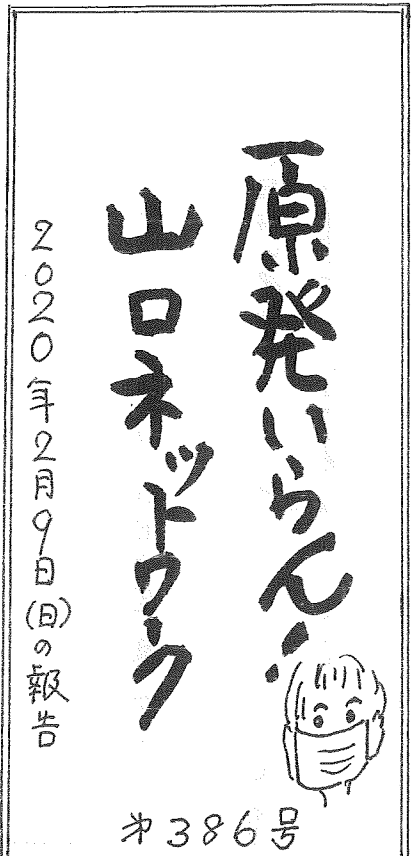 原発いらん!
山口ネットワーク
2020年2月9日(日)の報告
㐧386号